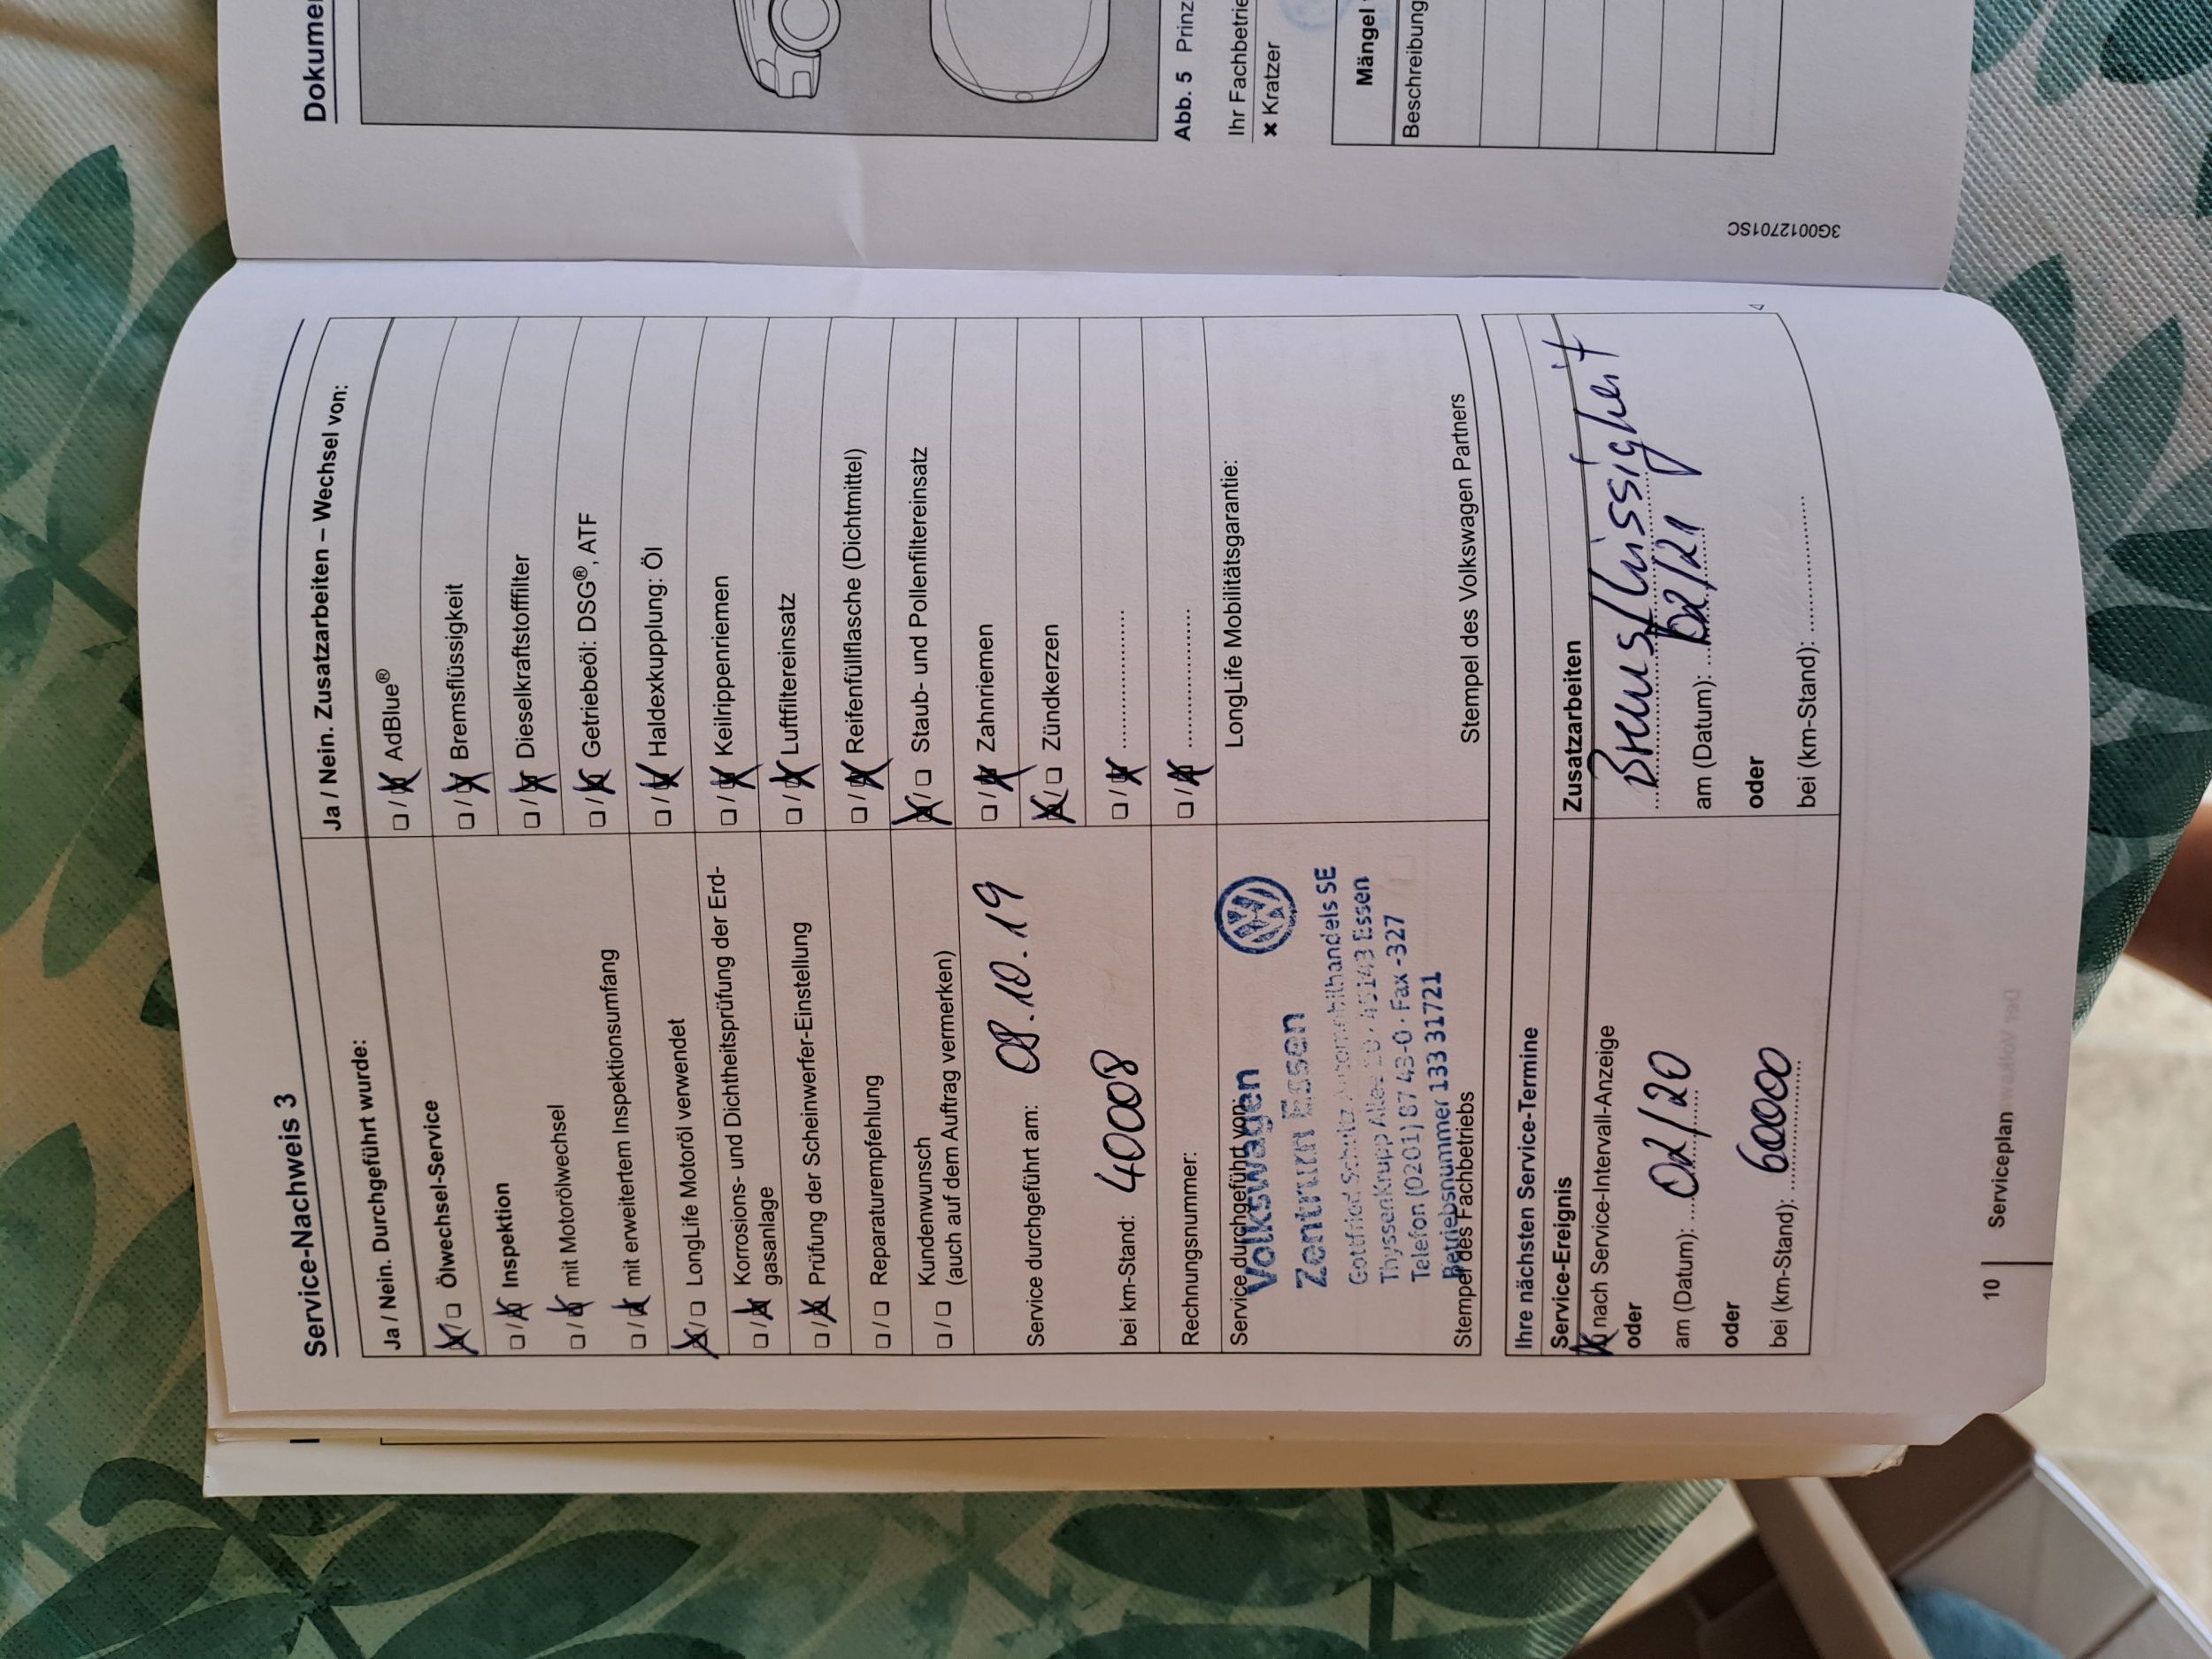 Service-Nachweis 3
Ja / Nein. Durchgeführt wurde:
Ölwechsel-Service
Inspektion
mit Motorölwechsel
mit erweitertem Inspektionsumfang
LongLife Motoröl verwendet
Korrosions- und Dichtheitsprüfung der Erd-
gasanlage
Prüfung der Scheinwerfer-Einstellung
Reparaturempfehlung
Kundenwunsch
(auch auf dem Auftrag vermerken)
Service durchgeführt am: 08.10.19
bei km-Stand: 40008
Rechnungsnummer:
Service durchgeführt von:
Volkswagen
Zentrum Essen
Gottfried Schultz Automobilhandels SE
ThyssenKrupp Allee 20 · 45143 Essen
Telefon (0201) 87 43-0 · Fax -327
Betriebsnummer 133 31721
Stempel des Fachbetriebs
Ja / Nein. Zusatzarbeiten – Wechsel von:
AdBlue®
Bremsflüssigkeit
Dieselkraftstofffilter
Getriebeöl: DSG®, ATF
Haldexkupplung: Öl
Keilrippenriemen
Luftfiltereinsatz
Reifenfüllflasche (Dichtmittel)
Staub- und Pollenfiltereinsatz
Zahnriemen
Zündkerzen
LongLife Mobilitätsgarantie:
Stempel des Volkswagen Partners
Ihre nächsten Service-Termine
Service-Ereignis
nach Service-Intervall-Anzeige
oder
am (Datum): 02/20
oder
bei (km-Stand): 60000
Zusatzarbeiten
Bremsflüssigkeit
am (Datum): 02/21
oder
bei (km-Stand):
10 Serviceplan
Dokumen
Abb. 5 Prinz
Ihr Fachbetrie
× Kratzer
Mängel
Beschreibung
3G0012701SC